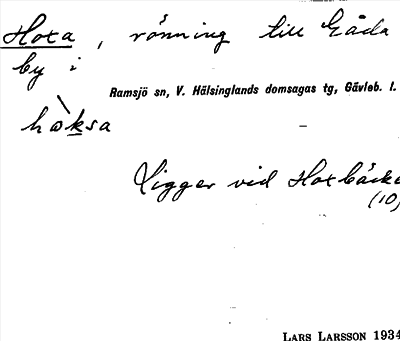 Hoxa, rönning till Gåda
by i
Ramsjö sn, V. Hälsinglands domsagas tg, Gävleb. l.
hòksa
Ligger vid Hoxbäcke
(10)
LARS LARSSON 1934